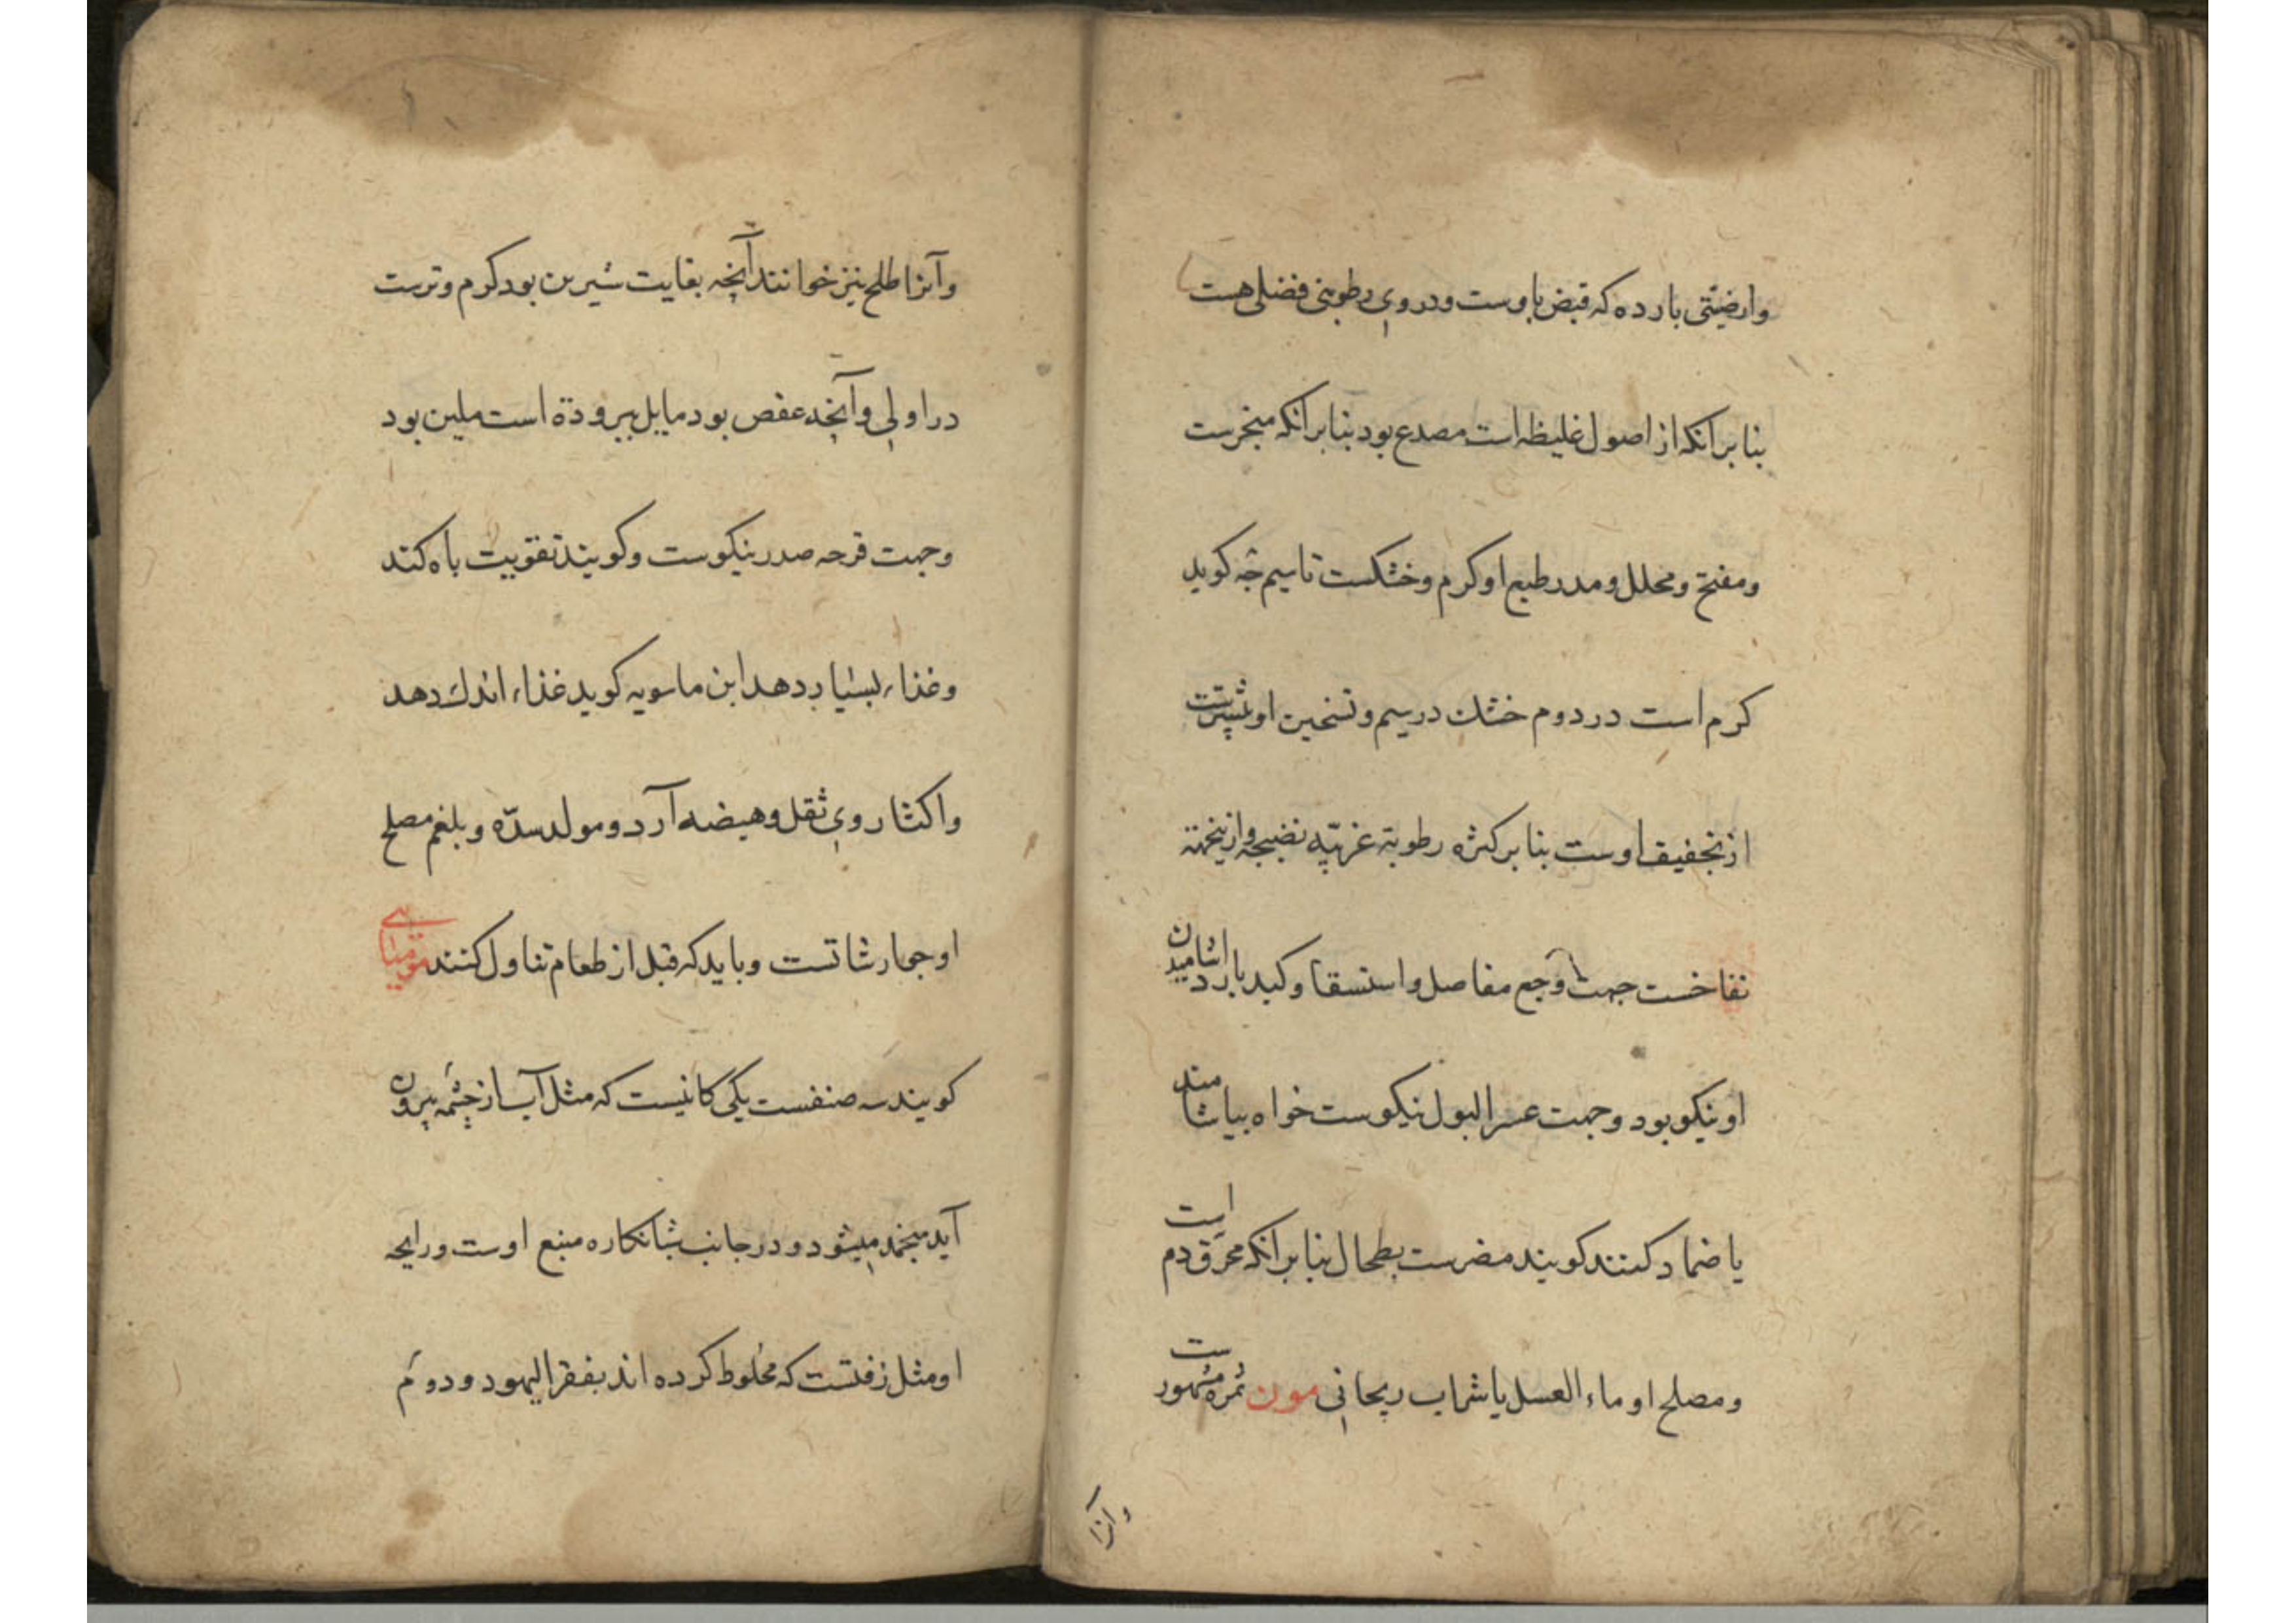 وارضیتی بارده که قبض باوست ودر وی رطوبتی فضلی هست
بنا برانکه از اصول غلیظه است مصدع بود بنا برانکه مبخرست
ومفتح ومحلل ومدر طبع او کرم وخشکست تا سیم جه کوید
کرم است در دوم خشک در سیم وتسخین او بیشترست
از تجفیف اوست بنا بر کثرة رطوبة غریبه نضیجه وازینجهة
نفاخست جهت وجع مفاصل واستسقا وکبد بارد اشامیدن
او نیکو بود وجهت عسر البول نیکوست خواه بیاشامند
یا ضماد کنند کویند مضرست بطحال بنا برانکه محرق دم است
ومصلح او ماء العسل یا شراب ریحانی مون ثمره مشهورست
وآنرا
وآنرا طلح نیز خوانند آنچه بغایت شیرین بود کرم وترست
در اولی وآنچه عفص بود مایل ببرودة است ملین بود
وجهت قرحه صدر نیکوست وکویند تقویت باه کند
وغذاء بسیار دهد ابن ماسویه کوید غذاء اندک دهد
واکثار وی ثقل وهیضه آرد ومولد سدّه وبلغم مصلح
او جوارشاتست وباید که قبل از طعام تناول کنند مومیائی
کویند سه صنفست یکی کانیست که مثل آب از چشمه بیرون
آید منجمد میشود ودر جانب شبانکاره منبع اوست ورایحه
او مثل زفتست که مخلوط کرده اند بقفر الیهود ودوم